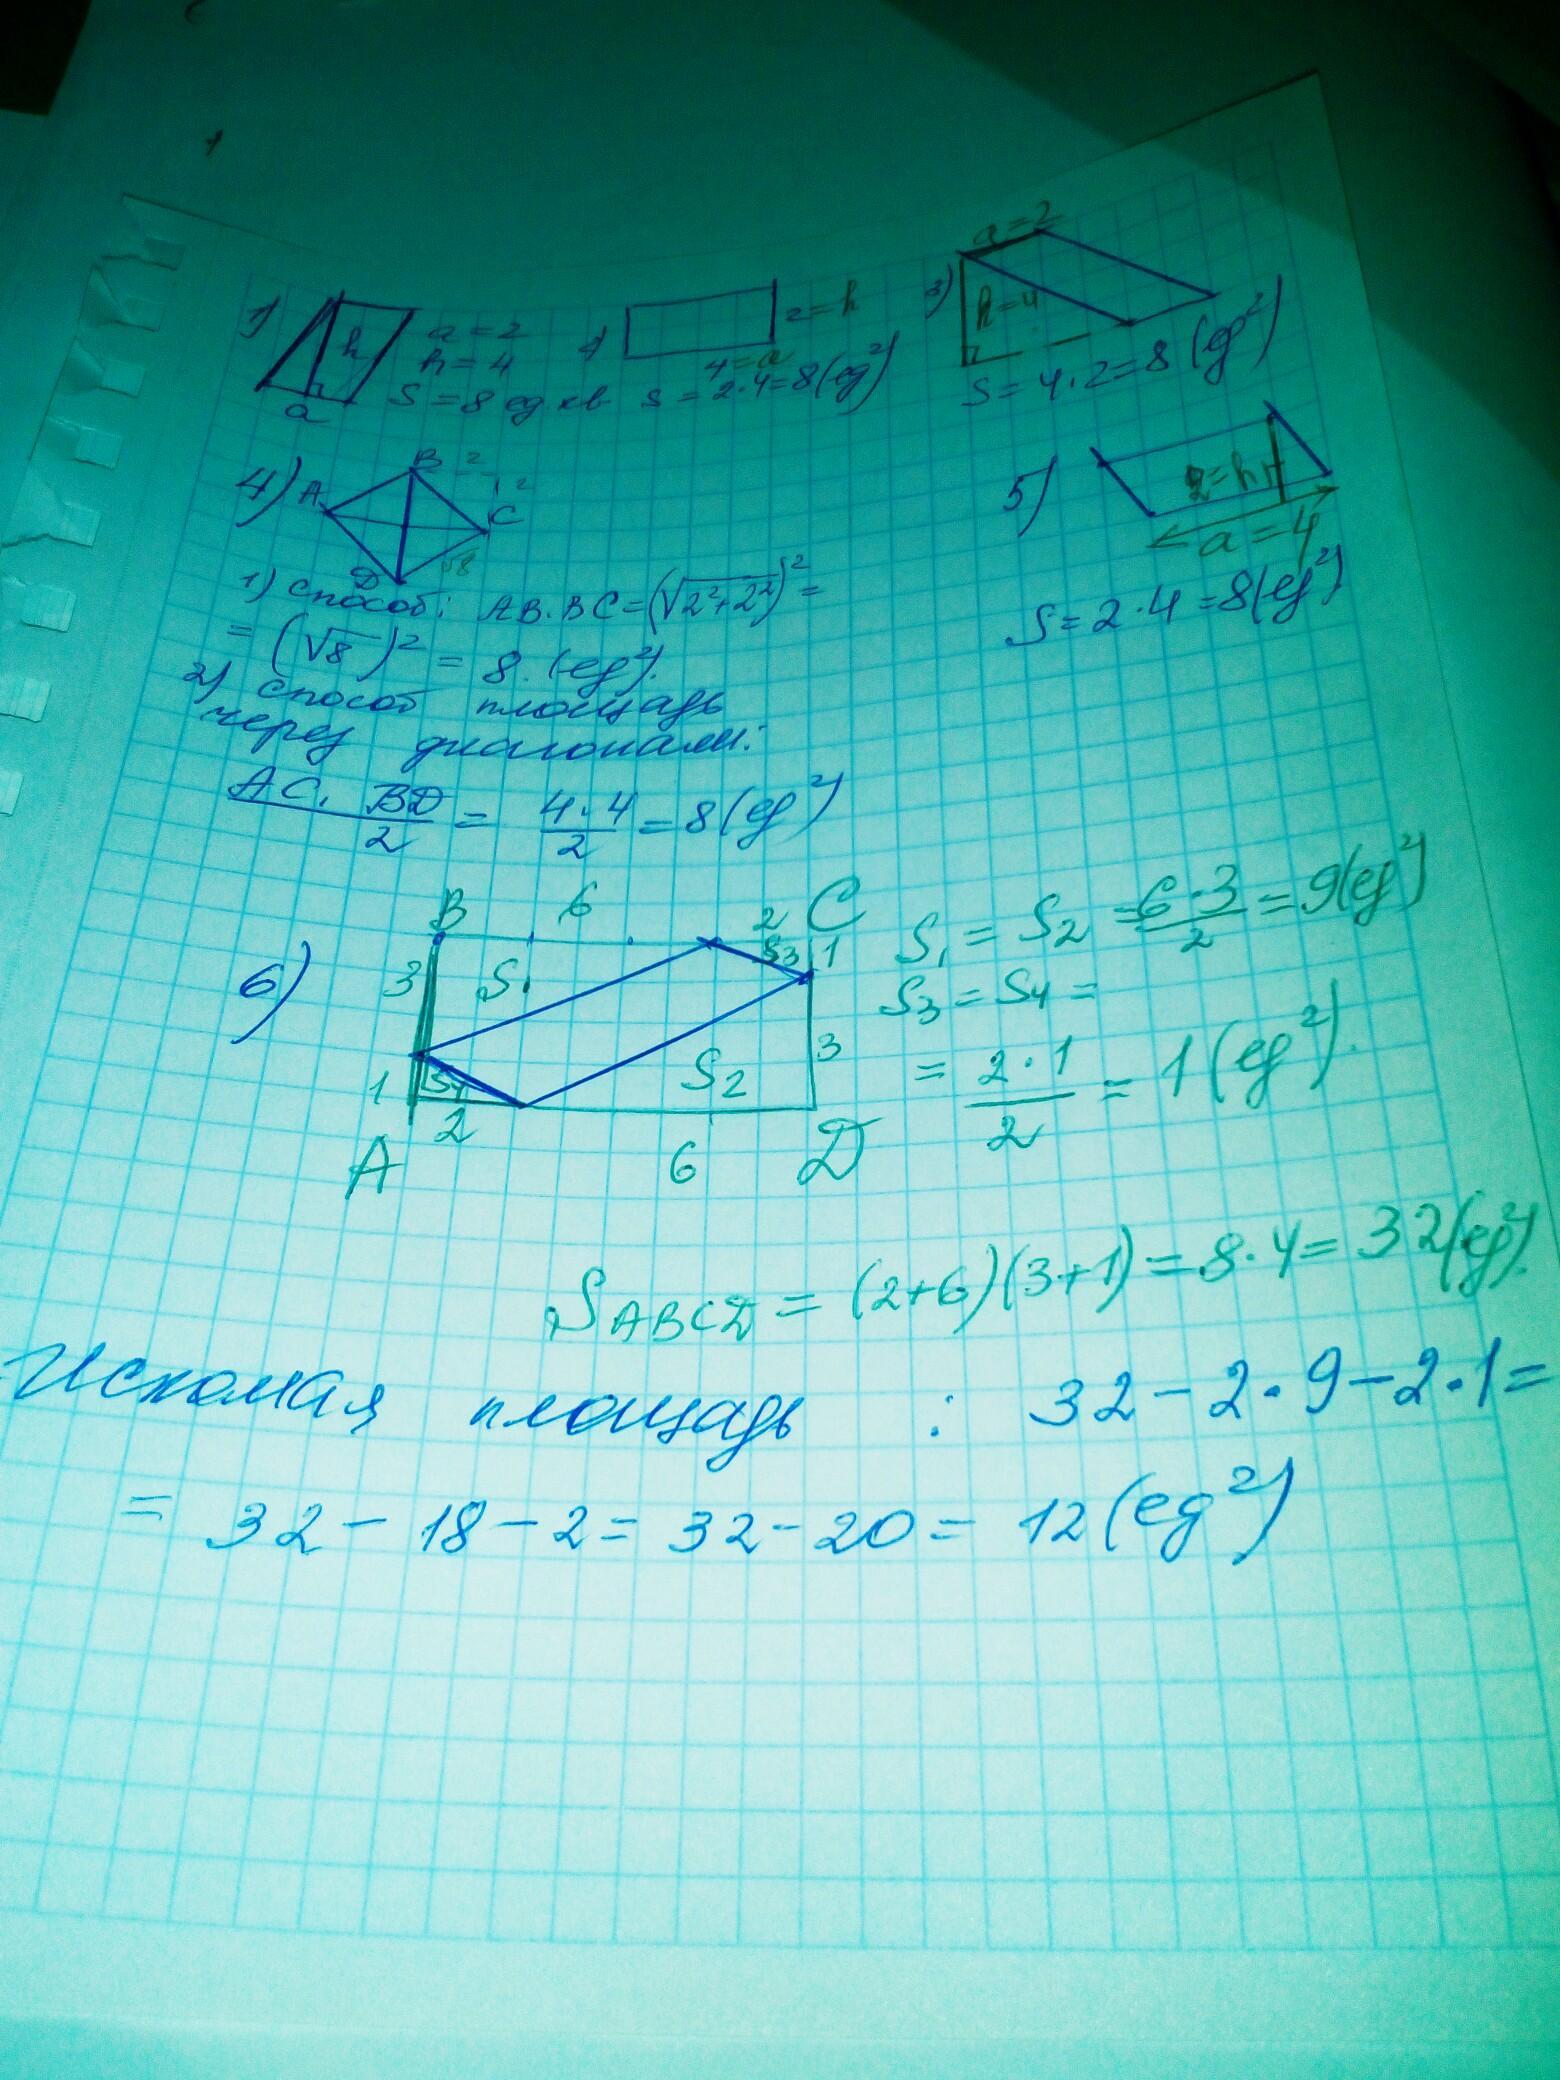 1) h a = 2
h = 4
a S = 8 ед. кв
2 = h
4 = a
S = 2·4 = 8 (ед²)
3) a = 2
h = 4
S = 4·2 = 8 (ед²)
4) A B 2 2 C
D √8
1) способ: AB·BC = (√2²+2²)² =
= (√8)² = 8 (ед²).
2) способ площадь
через диагонали:
AC · BD / 2 = 4·4 / 2 = 8 (ед²)
5) 2 = h
a = 4
S = 2·4 = 8 (ед²)
6) B 6 2 C
3 S₁ S₃ 1
1 S₄ S₂ 3
A 2 6 D
S₁ = S₂ = 6·3 / 2 = 9 (ед²)
S₃ = S₄ =
= 2·1 / 2 = 1 (ед²).
S ABCD = (2+6)(3+1) = 8·4 = 32 (ед²).
Искомая площадь : 32 – 2·9 – 2·1 =
= 32 – 18 – 2 = 32 – 20 = 12 (ед²)